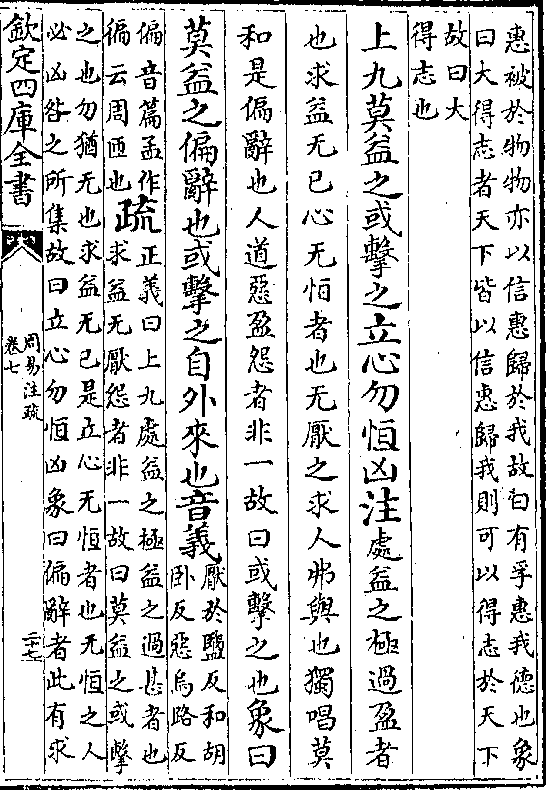 惠被於物物亦以信惠歸於我故曰有孚惠我德也象
曰大得志者天下皆以信惠歸我則可以得志於天下
故曰大
得志也
上九莫益之或擊之立心勿恒凶注處益之極過盈者
也求益无已心无恒者也无厭之求人弗與也獨唱莫
和是偏辭也人道惡盈怨者非一故曰或擊之也象曰
莫益之偏辭也或擊之自外來也音義厭於鹽反和胡
卧反惡烏路反
偏音篇孟作
徧云周匝也疏正義曰上九處益之極益之過甚者也
求益无厭怨者非一故曰莫益之或擊
之也勿猶无也求益无已是立心无恒者也无恒之人
必凶咎之所集故曰立心勿恒凶象曰偏辭者此有求
欽定四庫全書
周易注疏
卷七
二十七